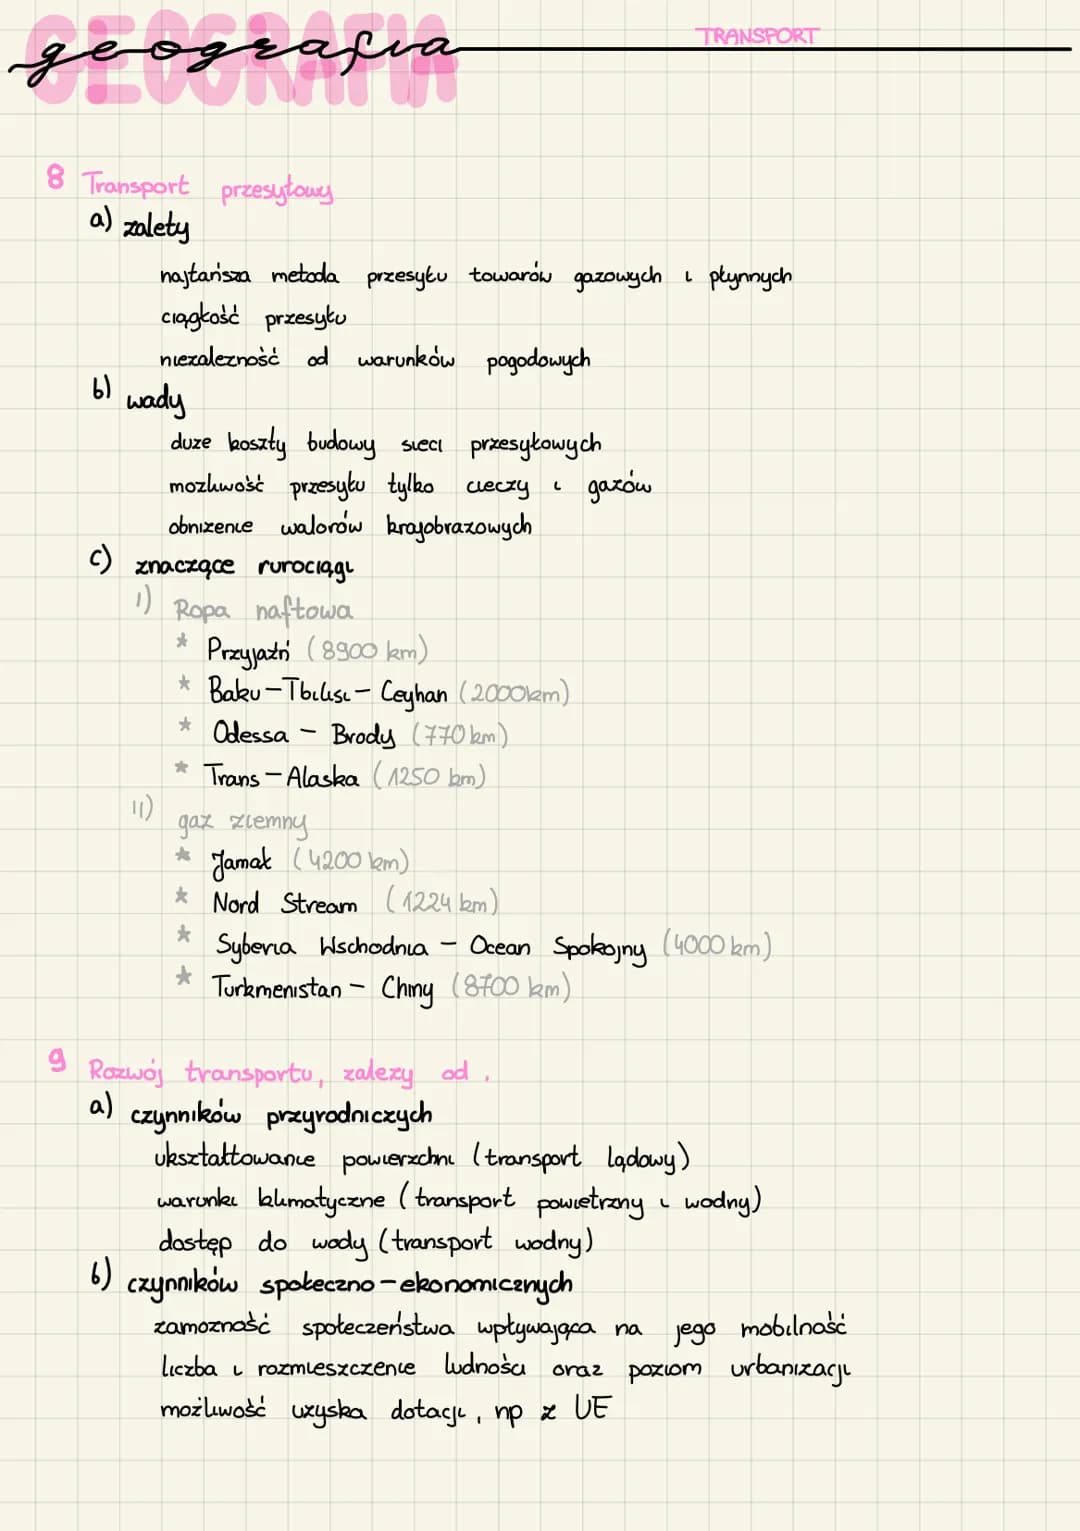 GEOGRAFIA
geografia
TRANSPORT
8 Transport przesyłowy
a) zalety
najtańsza metoda przesyłu towarów gazowych i płynnych
ciągłość przesyłu
niezależność od warunków pogodowych
b) wady
duze koszty budowy sieci przesyłowych
mozliwość przesyłu tylko cieczy i gazów
obnizenie walorów krajobrazowych
c) znaczące rurociągi
I) Ropa naftowa
* Przyjaźń (8900 km)
* Baku-Tbilisi- Ceyhan (2000km)
* Odessa - Brody (770 km)
* Trans-Alaska (1250 km)
II) gaz ziemny
* Jamał (4200 km)
* Nord Stream (1224 km)
* Syberia Wschodnia - Ocean Spokojny (4000 km)
* Turkmenistan - Chiny (8700 km)
9 Rozwój transportu, zalezy od :
a) czynników przyrodniczych
ukształtowanie powierzchni (transport lądowy)
warunki klimatyczne (transport powietrzny i wodny)
dostęp do wody (transport wodny)
b) czynników społeczno-ekonomicznych
zamozność społeczeństwa wpływająca na jego mobilność
liczba i rozmieszczenie ludności oraz poziom urbanizacji
możliwość uzyska dotacji, np z UE